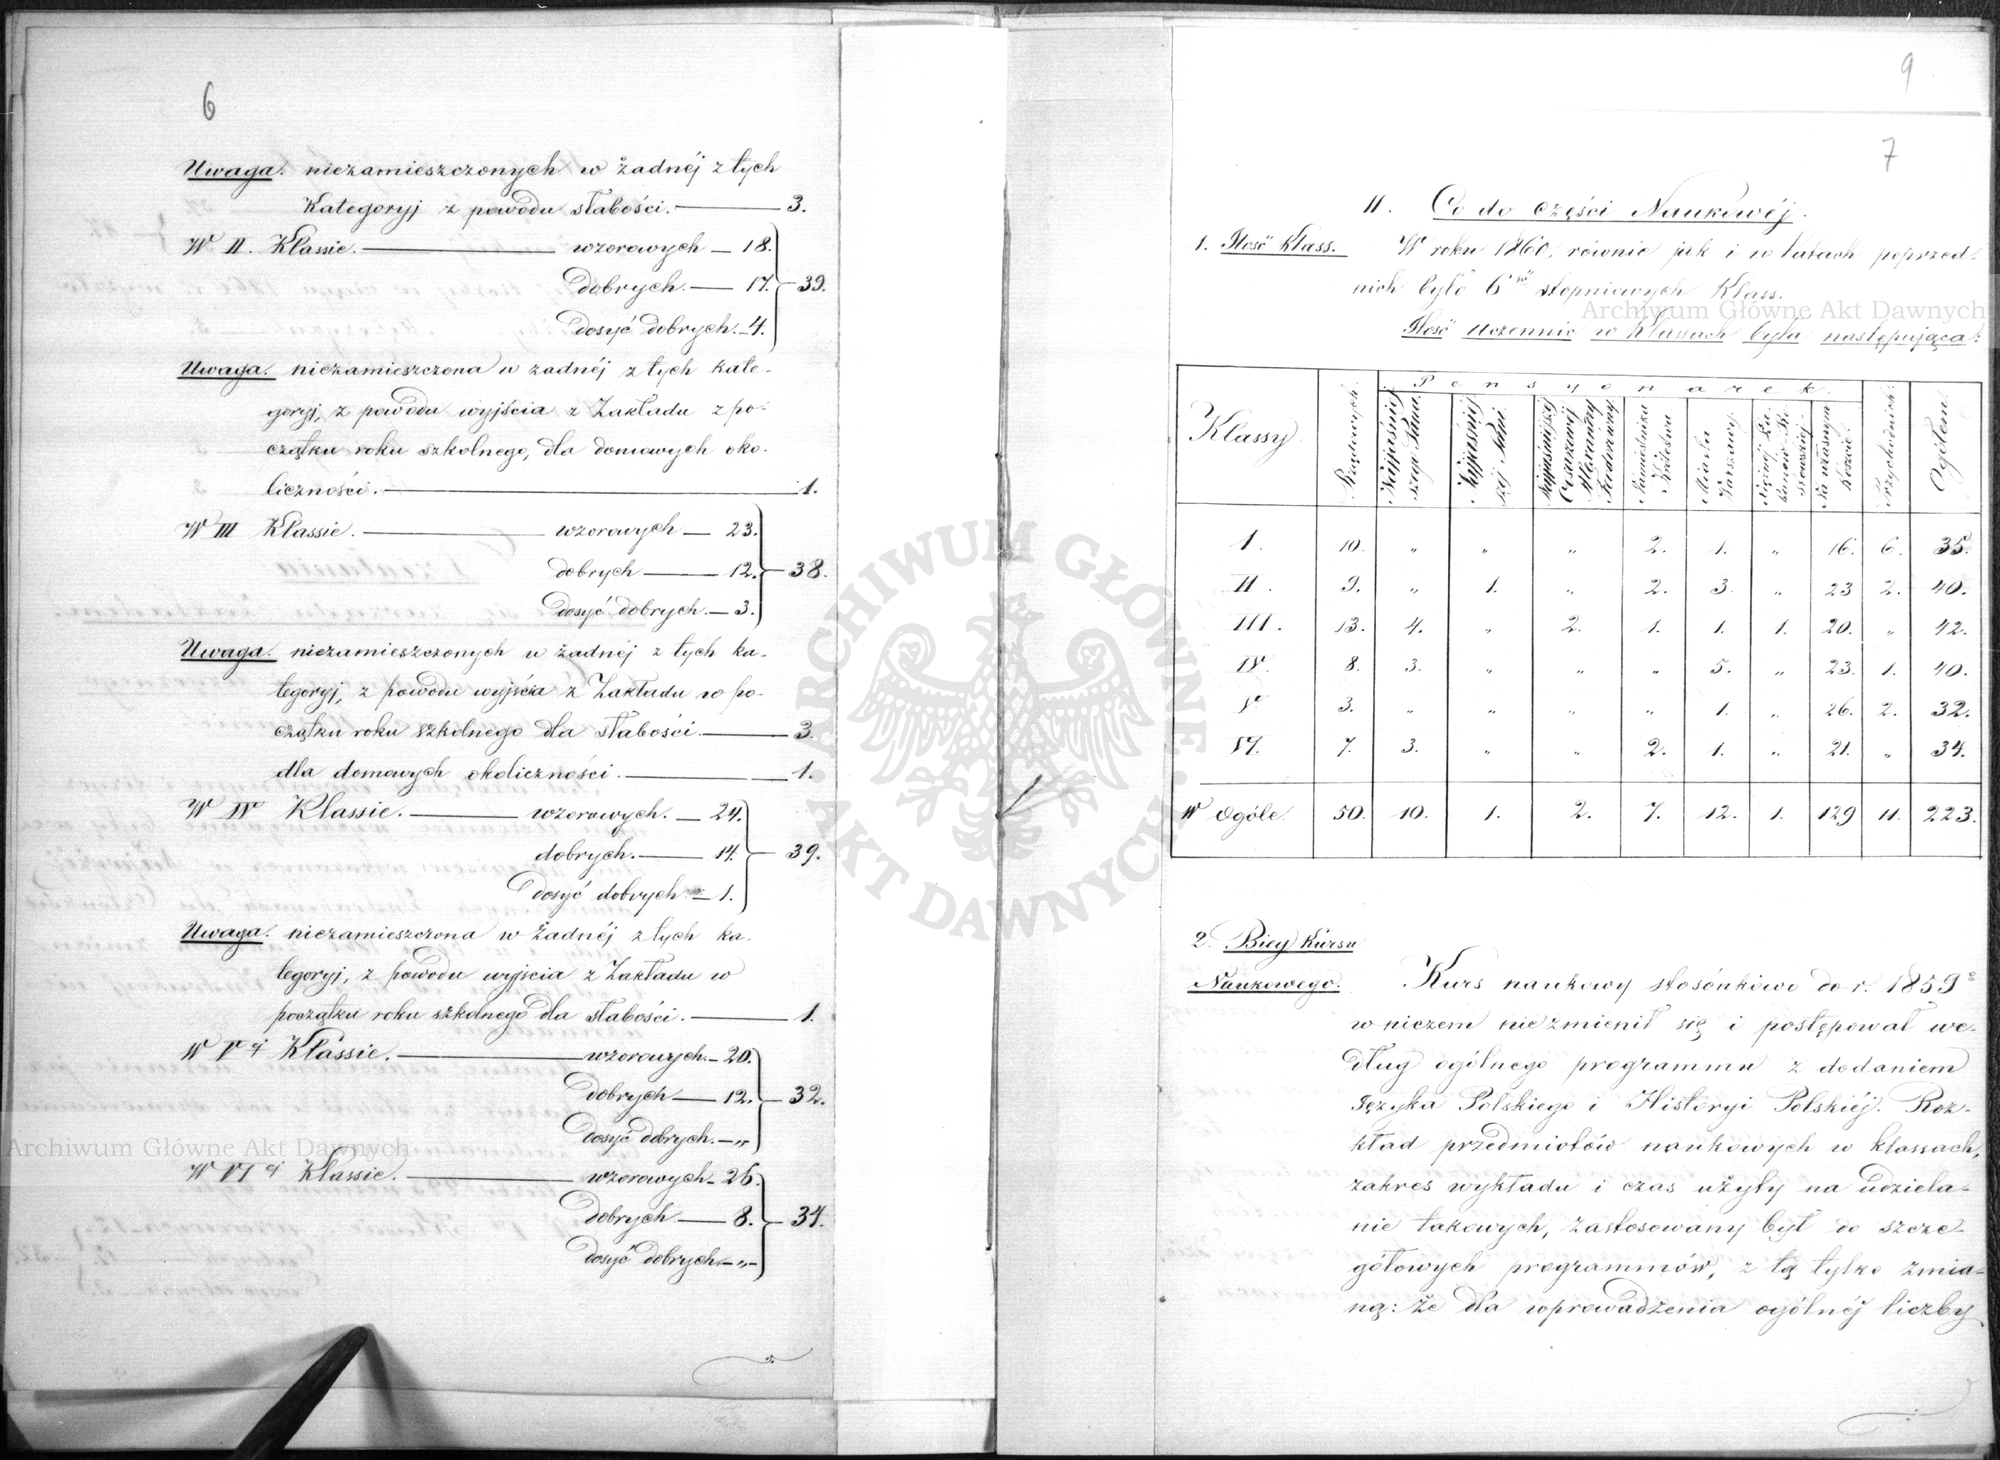 6
Uwaga. niezamieszczonych w żadnéj z tych
Kategoryj z powodu słabości. — 3.
W II. Klassie. — wzorowych — 18.
dobrych. — 17. — 39.
dosyć dobrych. — 4.
Uwaga. niezamieszczona w żadnéj z tych kate-
goryj, z powodu wyjścia z Zakładu z po-
czątku roku szkolnego, dla domowych oko-
liczności. — 1.
W III Klassie. — wzorowych — 23.
dobrych — 12. — 38.
dosyć dobrych. — 3.
Uwaga. niezamieszczonych w żadnéj z tych ka-
tegoryj, z powodu wyjścia z Zakładu w po-
czątku roku szkolnego dla słabości. — 3.
dla domowych okoliczności. — 1.
W IV Klassie. — wzorowych. — 24.
dobrych. — 14. — 39.
dosyć dobrych — 1.
Uwaga. niezamieszczona w żadnéj z tych ka-
tegoryj, z powodu wyjścia z Zakładu w
początku roku szkolnego dla słabości. — 1.
W V éj Klassie. — wzorowych. — 20.
dobrych — 12. — 32.
dosyć dobrych. — „ —
W VI éj Klassie. — wzorowych — 26.
dobrych — 8. — 34.
dosyć dobrych — „ —
9
7
II. Co do części Naukowéj.
1. Ilość Klass. W roku 1860, równie jak i w latach poprzed-
nich było 6 stopniowych Klass.
Ilość Uczennic w Klassach była następująca:
Klassy Rządowych. Pensyonarek Przychodnich. Ogółem.
Najjaśniejszego Pana Najjaśniejszéj Pani Najjaśniejszéj Cesarzowéj Alexandry Fedorowny Namiestnika Królestwa Miasta Warszawy Na własnym koszcie.
I. 10. „ „ „ 2. 1. „ 16. 6. 35.
II. 9. „ 1. „ 2. 3. „ 23 2. 40.
III. 13. 4. „ 2. 1. 1. 1. 20. „ 42.
IV. 8. 3. „ „ „ 5. „ 23. 1. 40.
V. 3. „ „ „ „ 1. „ 26. 2. 32.
VI. 7. 3. „ „ 2. 1. „ 21. „ 34.
W Ogóle. 50. 10. 1. 2. 7. 12. 1. 129 11. 223.
2. Bieg Kursu
Naukowego. Kurs naukowy stosónkowo do r. 1859º
w niczem nie zmienił się i postępował we-
dług ogólnego programmu z dodaniem
Języka Polskiego i Historyi Polskiéj. Roz-
kład przedmiotów naukowych w klassach,
zakres wykładu i czas użyty na udziela-
nie takowych, zastosowany był do szcze-
gółowych programmów, z tą tylko zmia-
ną: że dla wprowadzenia ogólnéj liczby
Archiwum Główne Akt Dawnych
Archiwum Główne Akt Dawnych
ARCHIWUM GŁÓWNE AKT DAWNYCH